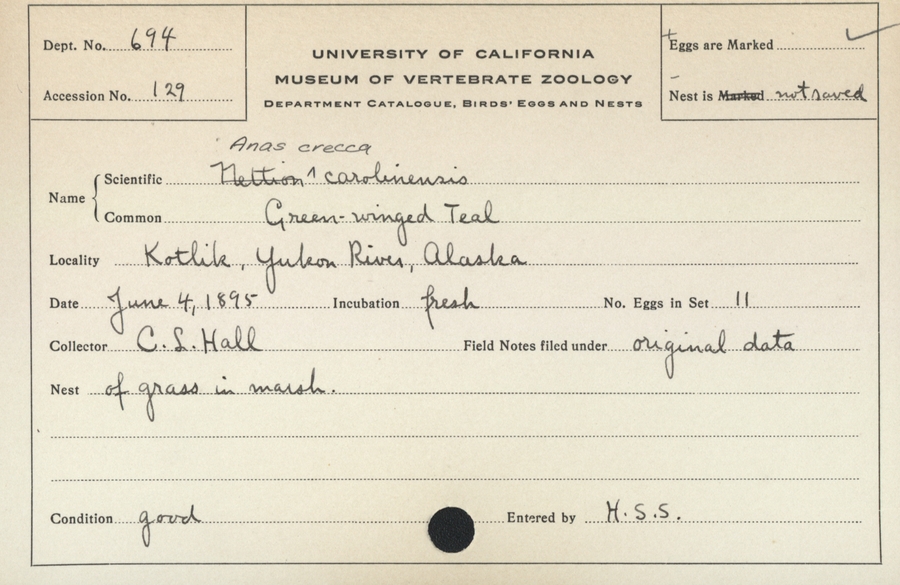 Dept. No. 694
UNIVERSITY OF CALIFORNIA
MUSEUM OF VERTEBRATE ZOOLOGY
DEPARTMENT CATALOGUE, BIRDS' EGGS AND NESTS
Accession No. 129
Eggs are Marked ✓
Nest is Marked not saved
Anas crecca
Name Scientific Nettion ^ carolinensis
Common Green-winged Teal
Locality Kotlik, Yukon River, Alaska
Date June 4, 1895 Incubation fresh No. Eggs in Set 11
Collector C. L. Hall Field Notes filed under original data
Nest of grass in marsh.
Condition good Entered by H. S. S.